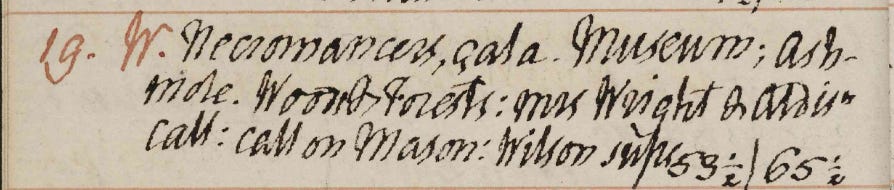 19. W. Necromancers, gala. Museum; Ash-
mole. Woods & Forests: Mrs Wright & Aldis
call: call on Mason: Wilson sups 53½/65½